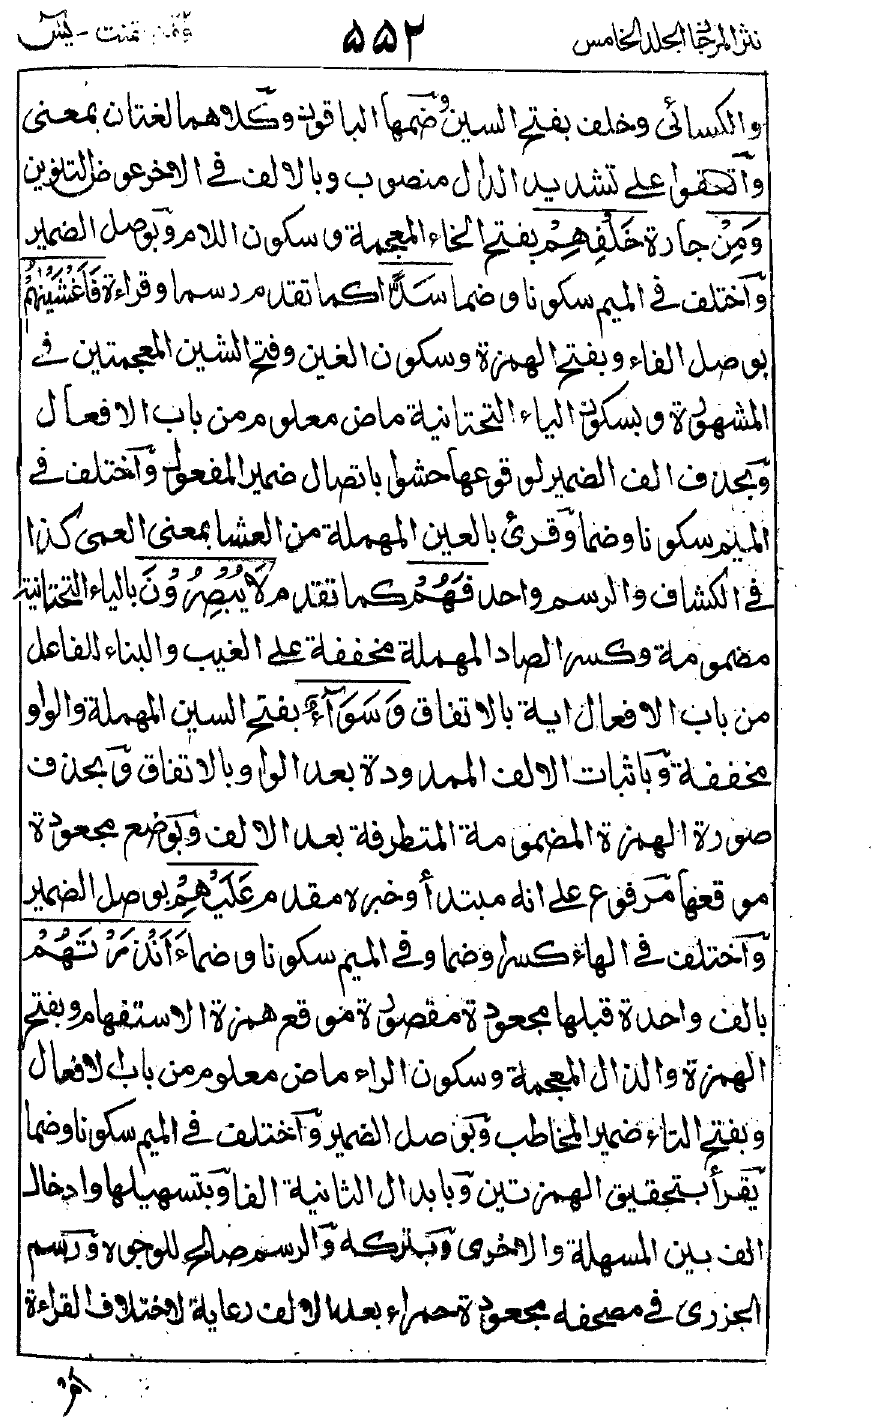 نثر المرجان الجلد الخامس ٥٥٢ يٰسٓ
والكسائى وخلف بفتح السين وضمها الباقون وكلاهما لغتان بمعنى
واتفقوا على تشديد الدال منصوب وبالالف فى الاخر عوض التنوين
وَمِنْ جارة خَلْفِهِمْ بفتح الخاء المعجمة وسكون اللام وبوصل الضمير
واختلف فى الميم سكونا وضما سَدًّا كما تقدم رسما وقراءة فَاَغْشَيْنٰهُمْ
بوصل الفاء وبفتح الهمزة وسكون الغين وفتح الشين المعجمتين فى
المشهورة وبسكون الياء التحتانية ماض معلوم من باب الافعال
وبحذف الف الضمير لوقوعها حشوا باتصال ضمير المفعول واختلف فى
الميم سكونا وضما وقرئ بالعين المهملة من العشا بمعنى العمى كذا
فى الكشاف والرسم واحد فَهُمْ كما تقدم لَا يُبْصِرُوْنَ بالياء التحتانية
مضمومة وكسر الصاد المهملة مخففة على الغيب والبناء للفاعل
من باب الافعال اية بالاتفاق وَسَوَآءٌ بفتح السين المهملة والواو
مخففة وباثبات الالف الممدودة بعد الواو بالاتفاق وبحذف
صورة الهمزة المضمومة المتطرفة بعد الالف وبوضع مجعودة
موقعها مرفوع على انه مبتدأ وخبره مقدم عَلَيْهِمْ بوصل الضمير
واختلف فى الهاء كسرا وضما وفى الميم سكونا وضما ءَاَنْذَرْتَهُمْ
بالف واحدة قبلها مجعودة مقصورة موقع همزة الاستفهام وبفتح
الهمزة والذال المعجمة وسكون الراء ماض معلوم من باب الافعال
وبفتح التاء ضمير المخاطب وبوصل الضمير واختلف فى الميم سكونا وضما
يقرأ بتحقيق الهمزتين وبابدال الثانية الفا وبتسهيلها وادخال
الف بين المسهلة والاخرى وبتركه والرسم صالح للوجوه ورسم
الجزرى فى مصحفه مجعودة حمراء بعد الالف رعاية لاختلاف القراءة